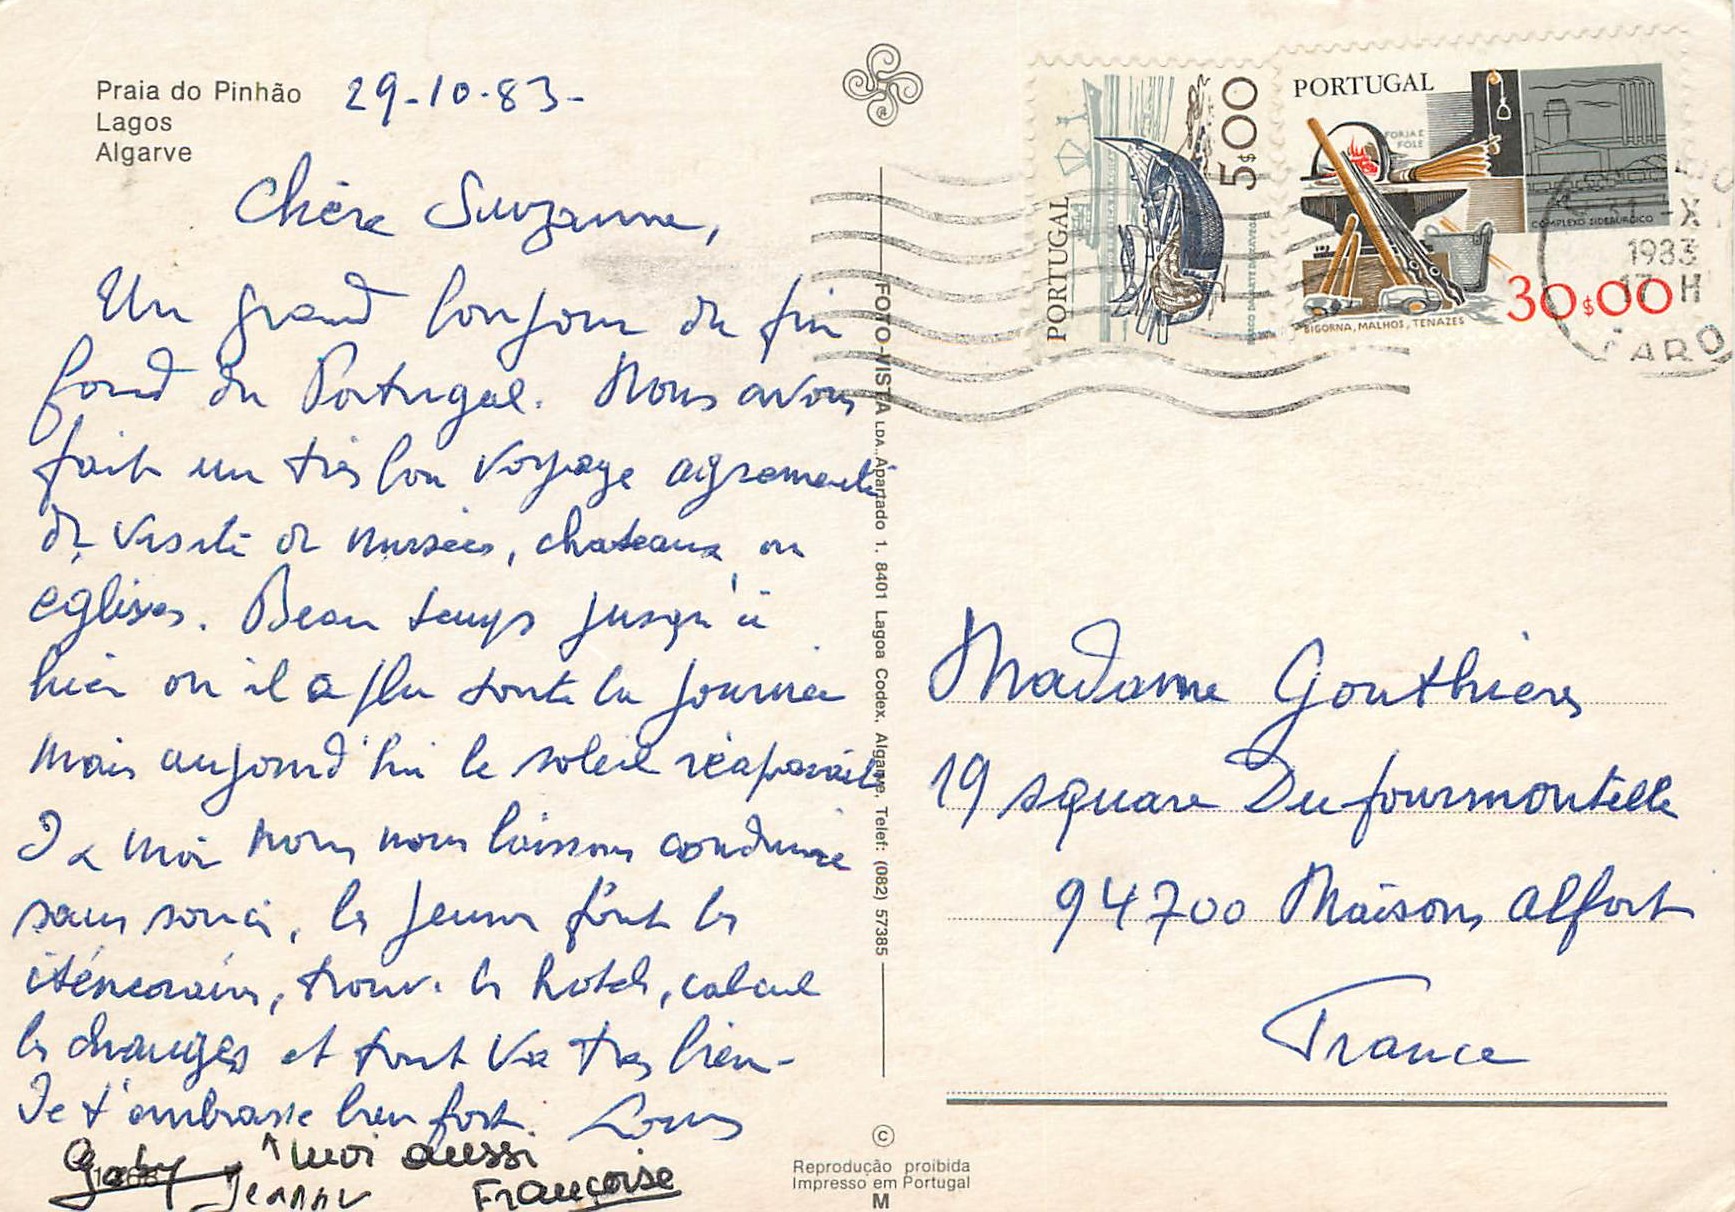 Praia do Pinhão
Lagos
Algarve
29-10-83-
Chère Suzanne,
Un grand bonjour du fin
fond du Portugal. Nous avons
fait un très bon voyage agrementé
de visite de musées, chateaux ou
églises. Beau temps jusqu'à
hier ou il a plu toute la journée
mais aujourd'hui le soleil réaparait
J & moi nous nous laissons conduire
sans souci, les jeunes font les
iténeraires, trouv. les hotels, calcul
les changes et tout va tres bien-
Je t'embrasse bien fort. Louis
moi aussi
Gaby
Jeanne
Françoise
FOTO-VISTA LDA. Apartado 1. 8401 Lagoa Codex. Algarve. Telef: (082) 57385
PORTUGAL
5$00
PORTUGAL
FORJA E
FOLE
COMPLEXO SIDERÚRGICO
BIGORNA, MALHOS, TENAZES
30$00
31-X
1983
17 H
FARO
Madame Gouthières
19 square Dufourmontelle
94700 Maisons Alfort
France
©
Reprodução proibida
Impresso em Portugal
M